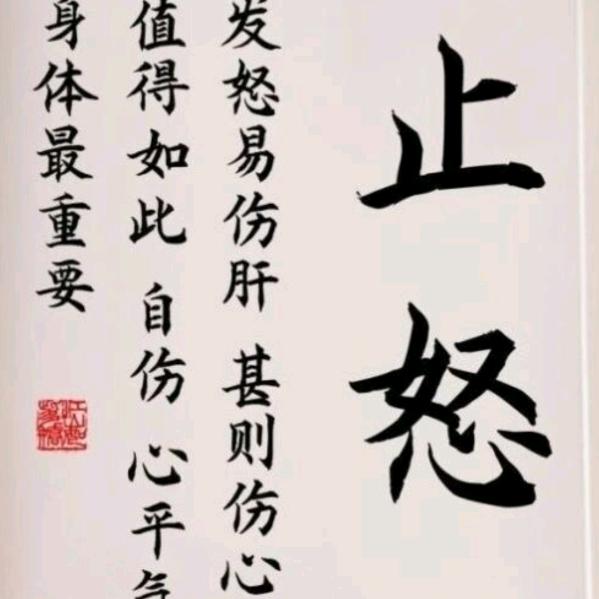 止怒
发怒易伤肝 甚则伤心
值得如此 自伤 心平气
身体最重要